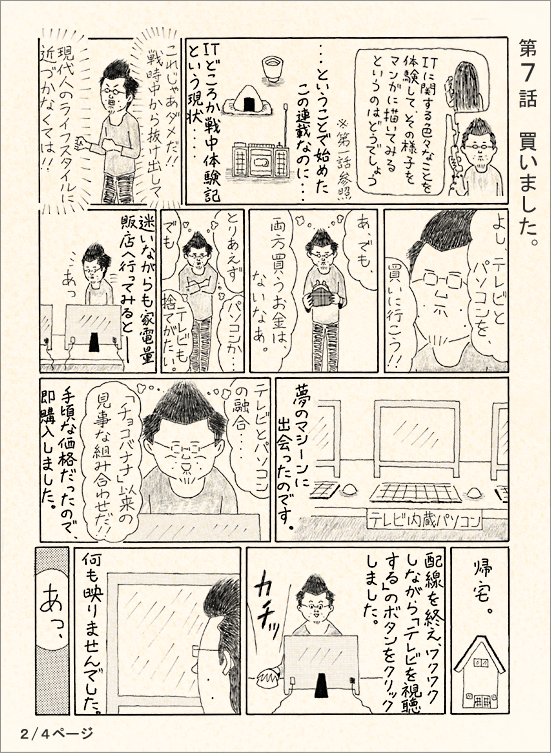 第7話 買いました。
ITに関する色々なことを
体験して、その様子を
マンガに描いてみる
というのはどうでしょう
※第一話参照
・・・ということで始めた
この連載なのに・・・
ITどころか戦中体験記
という現状・・・・
これじゃあダメだ!!
戦時中から抜け出して
現代人のライフスタイルに
近づかなくては!!
よし、テレビと
パソコンを、
買いに行こう!!
あ、でも、
両方買うお金は、
ないなぁ。
とりあえず
パソコンか・・
でも
テレビも
捨てがたい。
迷いながらも家電量
販店へ行ってみると―
あっ
夢のマシーンに
出会ったのです。
テレビ内蔵パソコン
テレビとパソコン
の融合・・・・
「チョコバナナ」以来の
見事な組み合わせだ!!
手頃な価格だったので、
即購入しました。
帰宅。
配線を終え、ワクワク
しながら「テレビを視聴
する」のボタンをクリック
しました。
カチッ
何も映りませんでした。
あっ、
2/4ページ